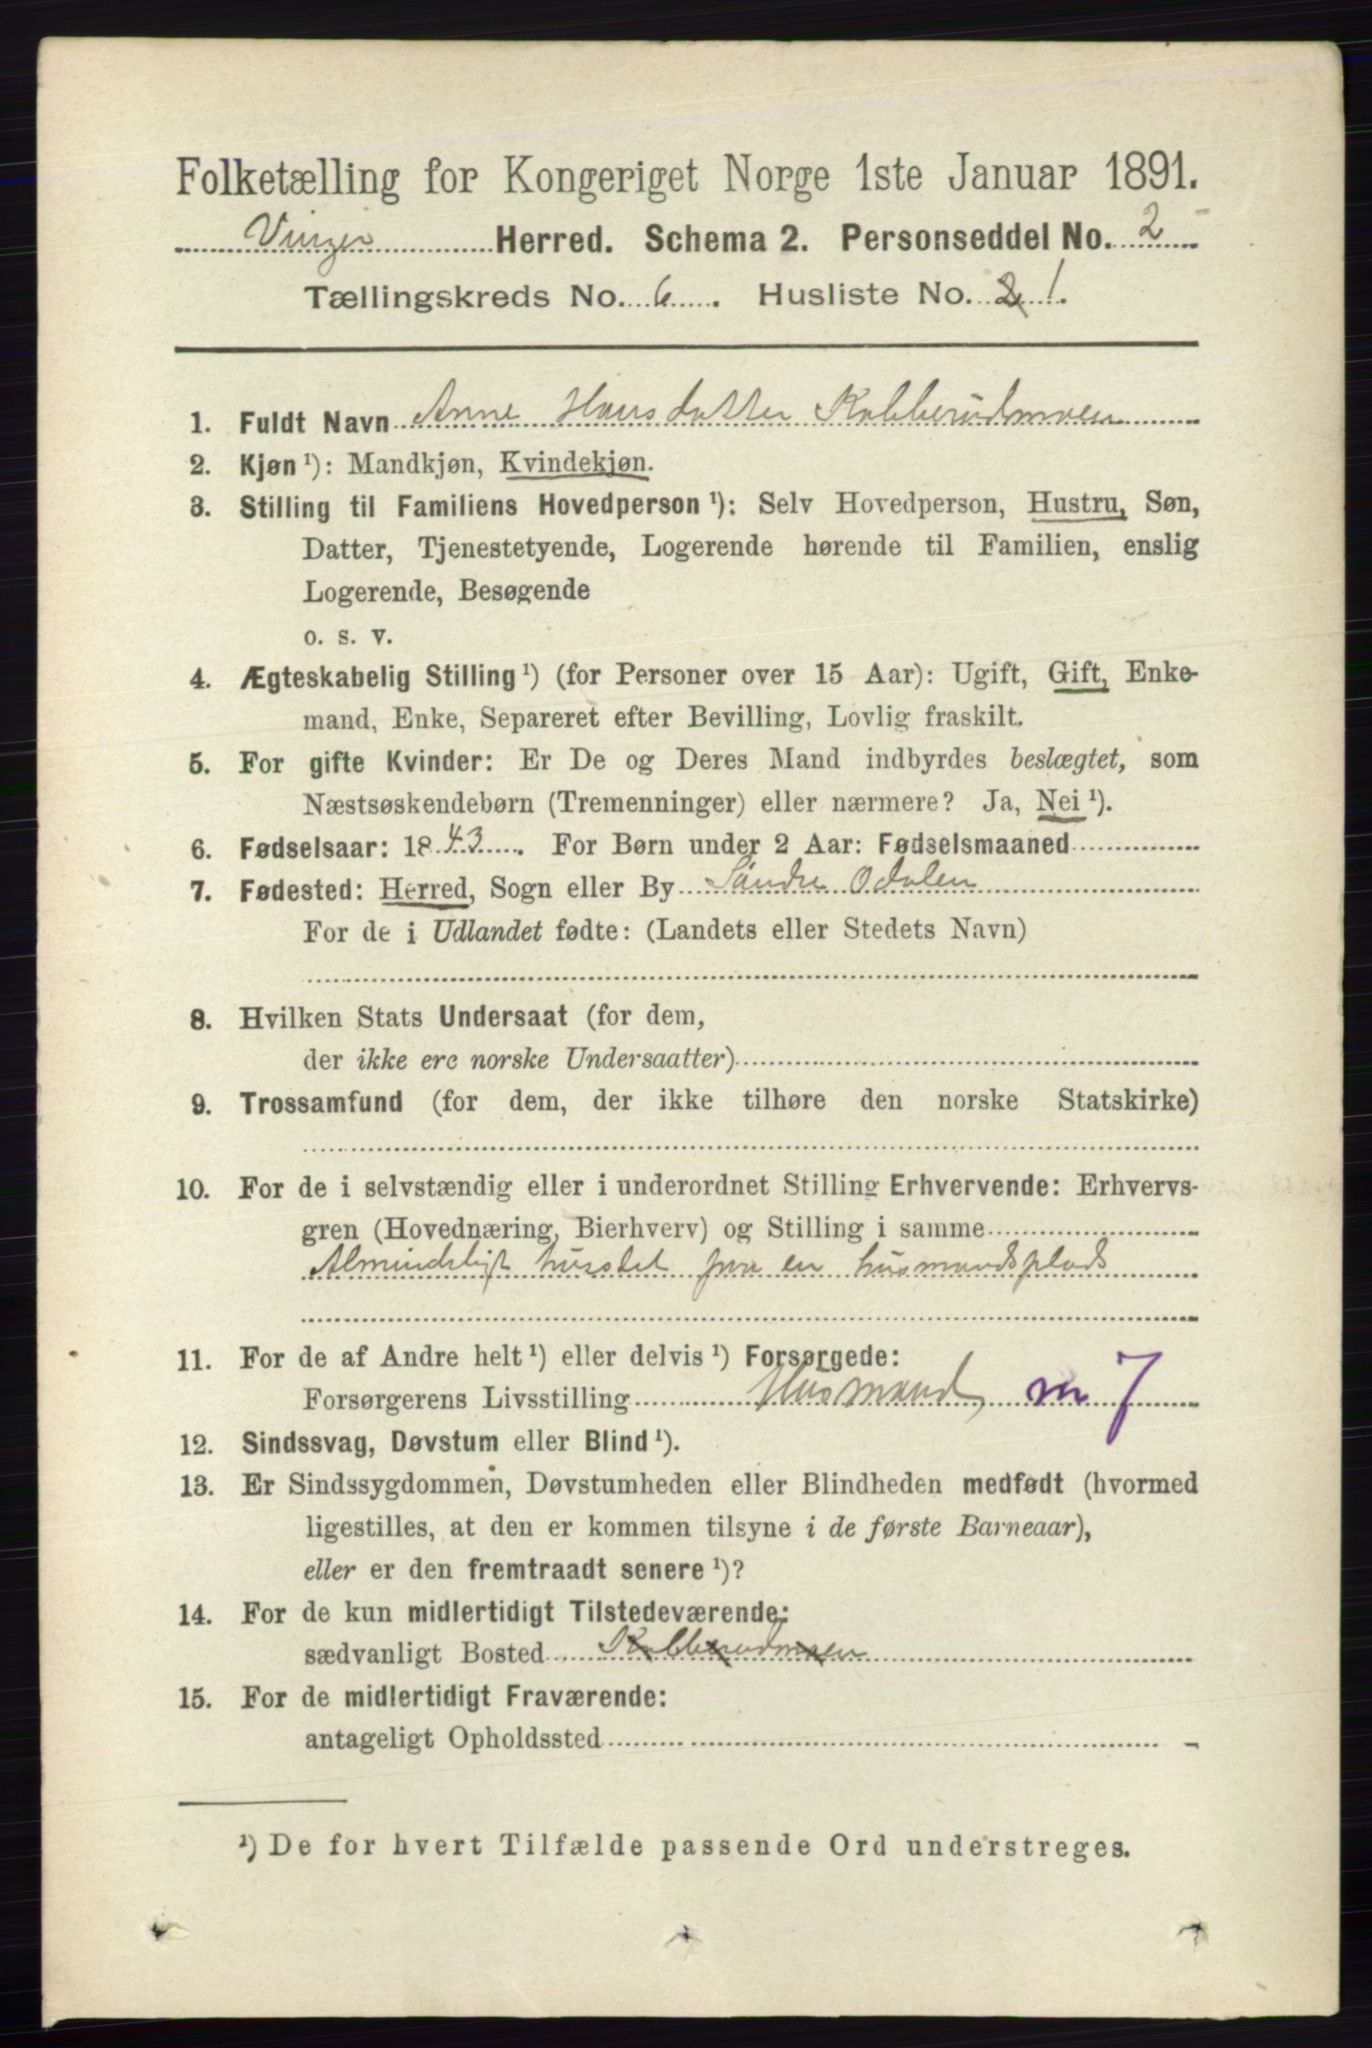 Folketælling for Kongeriget Norge 1ste Januar 1891.
Vinger Herred. Schema 2. Personseddel No. 2
Tællingskreds No. 6. Husliste No. 2 1.
1. Fuldt Navn Anne Hansdatter Kobberudmoen
2. Kjøn ¹): Mandkjøn, Kvindekjøn.
3. Stilling til Familiens Hovedperson ¹): Selv Hovedperson, Hustru, Søn,
Datter, Tjenestetyende, Logerende hørende til Familien, enslig
Logerende, Besøgende
o. s. v.
4. Ægteskabelig Stilling ¹) (for Personer over 15 Aar): Ugift, Gift, Enke-
mand, Enke, Separeret efter Bevilling, Lovlig fraskilt.
5. For gifte Kvinder: Er De og Deres Mand indbyrdes beslægtet, som
Næstsøskendebørn (Tremenninger) eller nærmere? Ja, Nei ¹).
6. Fødselsaar: 1843. For Børn under 2 Aar: Fødselsmaaned
7. Fødested: Herred, Sogn eller By Søndre Odalen
For de i Udlandet fødte: (Landets eller Stedets Navn)
8. Hvilken Stats Undersaat (for dem,
der ikke ere norske Undersaatter)
9. Trossamfund (for dem, der ikke tilhøre den norske Statskirke)
10. For de i selvstændig eller i underordnet Stilling Erhvervende: Erhvervs-
gren (Hovednæring, Bierhverv) og Stilling i samme
Almindeligt husstel paa en husmandsplads
11. For de af Andre helt ¹) eller delvis ¹) Forsørgede:
Forsørgerens Livsstilling Husmand m 7
12. Sindssvag, Døvstum eller Blind ¹).
13. Er Sindssygdommen, Døvstumheden eller Blindheden medfødt (hvormed
ligestilles, at den er kommen tilsyne i de første Barneaar),
eller er den fremtraadt senere ¹)?
14. For de kun midlertidigt Tilstedeværende:
sædvanligt Bosted Kobberudmoen
15. For de midlertidigt Fraværende:
antageligt Opholdssted
¹) De for hvert Tilfælde passende Ord understreges.